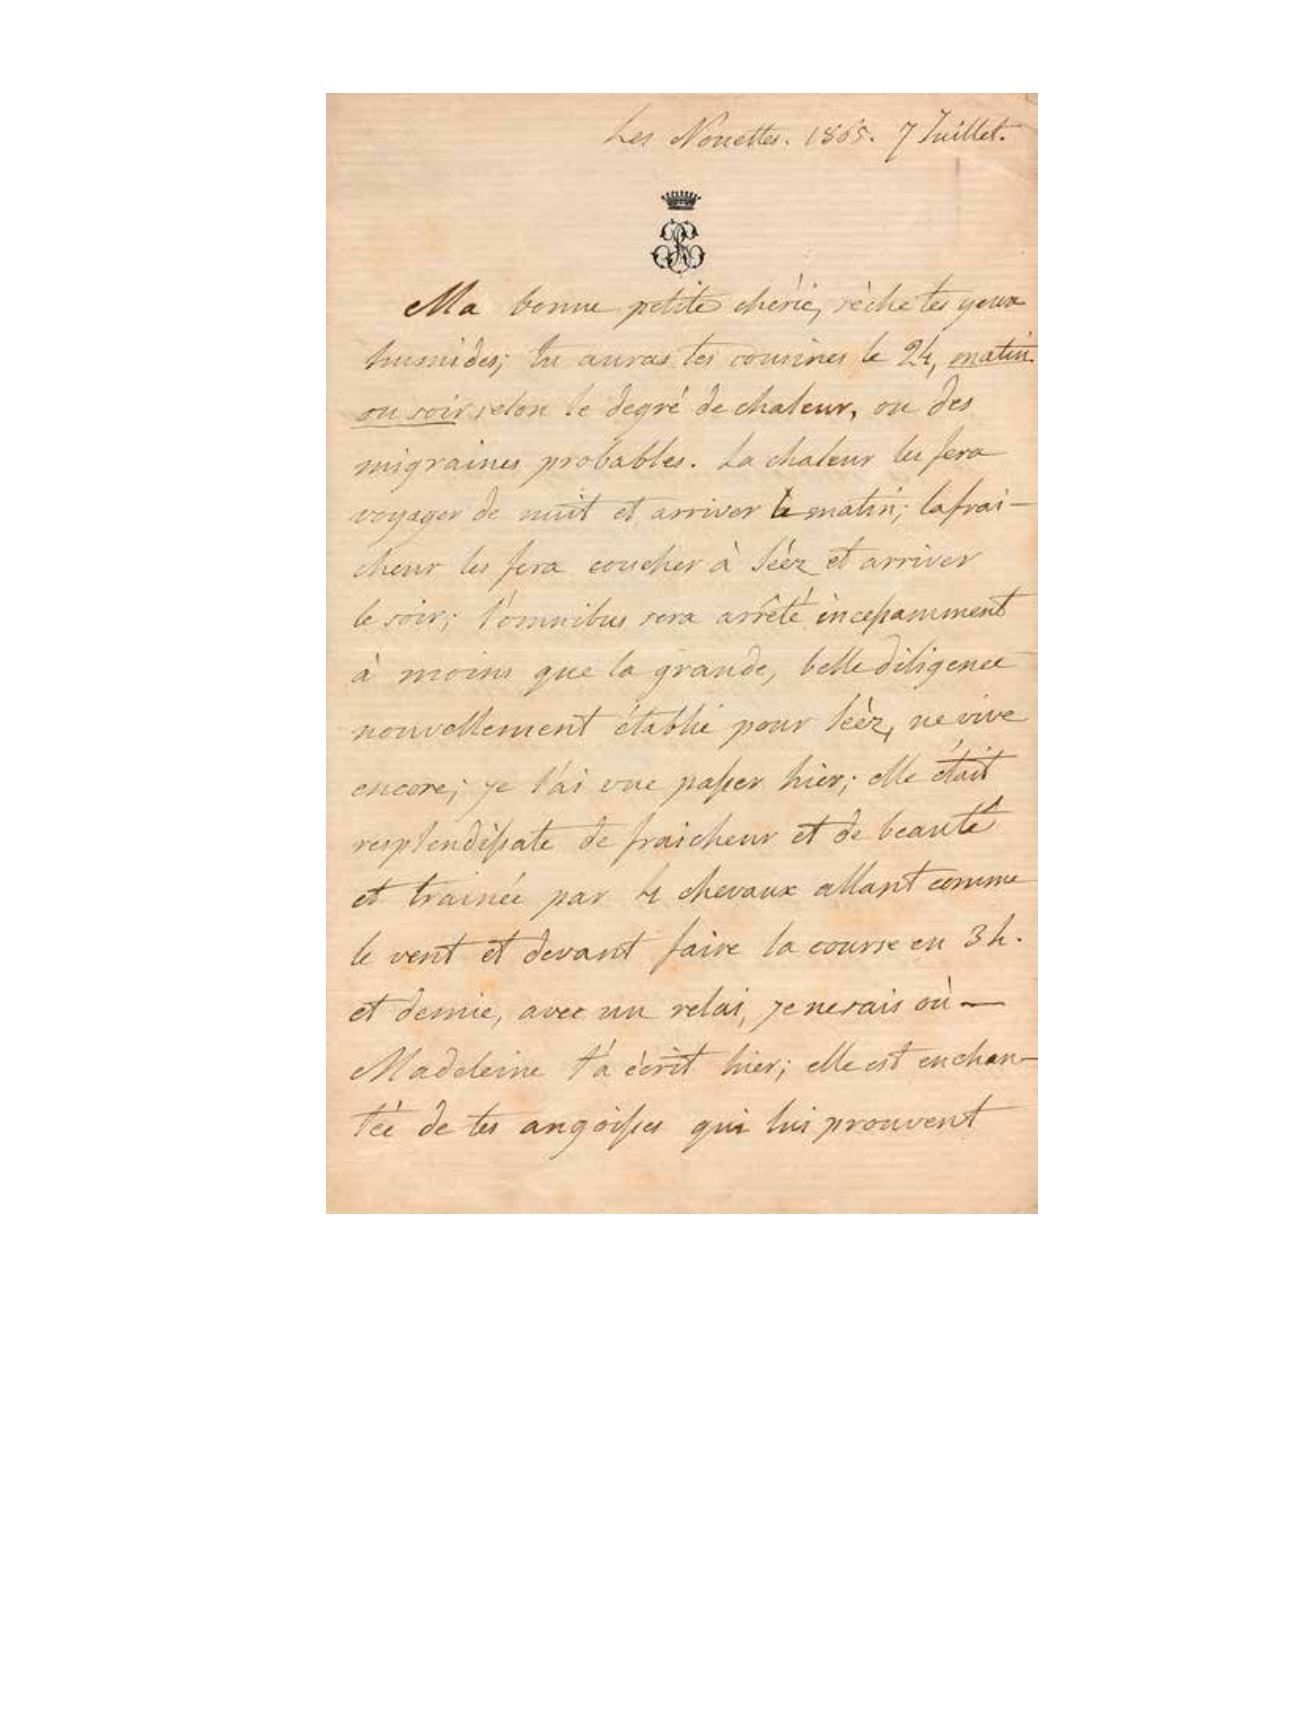 Les Nouettes. 1865. 7 Juillet.
Ma bonne petite chérie, sèche tes yeux
humides; tu auras tes cousines le 24, matin
ou soir selon le degré de chaleur, ou des
migraines probables. La chaleur les fera
voyager de nuit et arriver le matin; la fraî-
cheur les fera coucher à Séez et arriver
le soir; l'omnibus sera arrêté incessamment
à moins que la grande, belle diligence
nouvellement établie pour Séez, ne vive
encore; je l'ai vue passer hier; elle était
resplendissate de fraicheur et de beauté
et trainée par 4 chevaux allant comme
le vent et devant faire la course en 3 h.
et demie, avec un relai, je ne sais où —
Madeleine t'a écrit hier; elle est enchan-
tée de tes angoisses qui lui prouvent